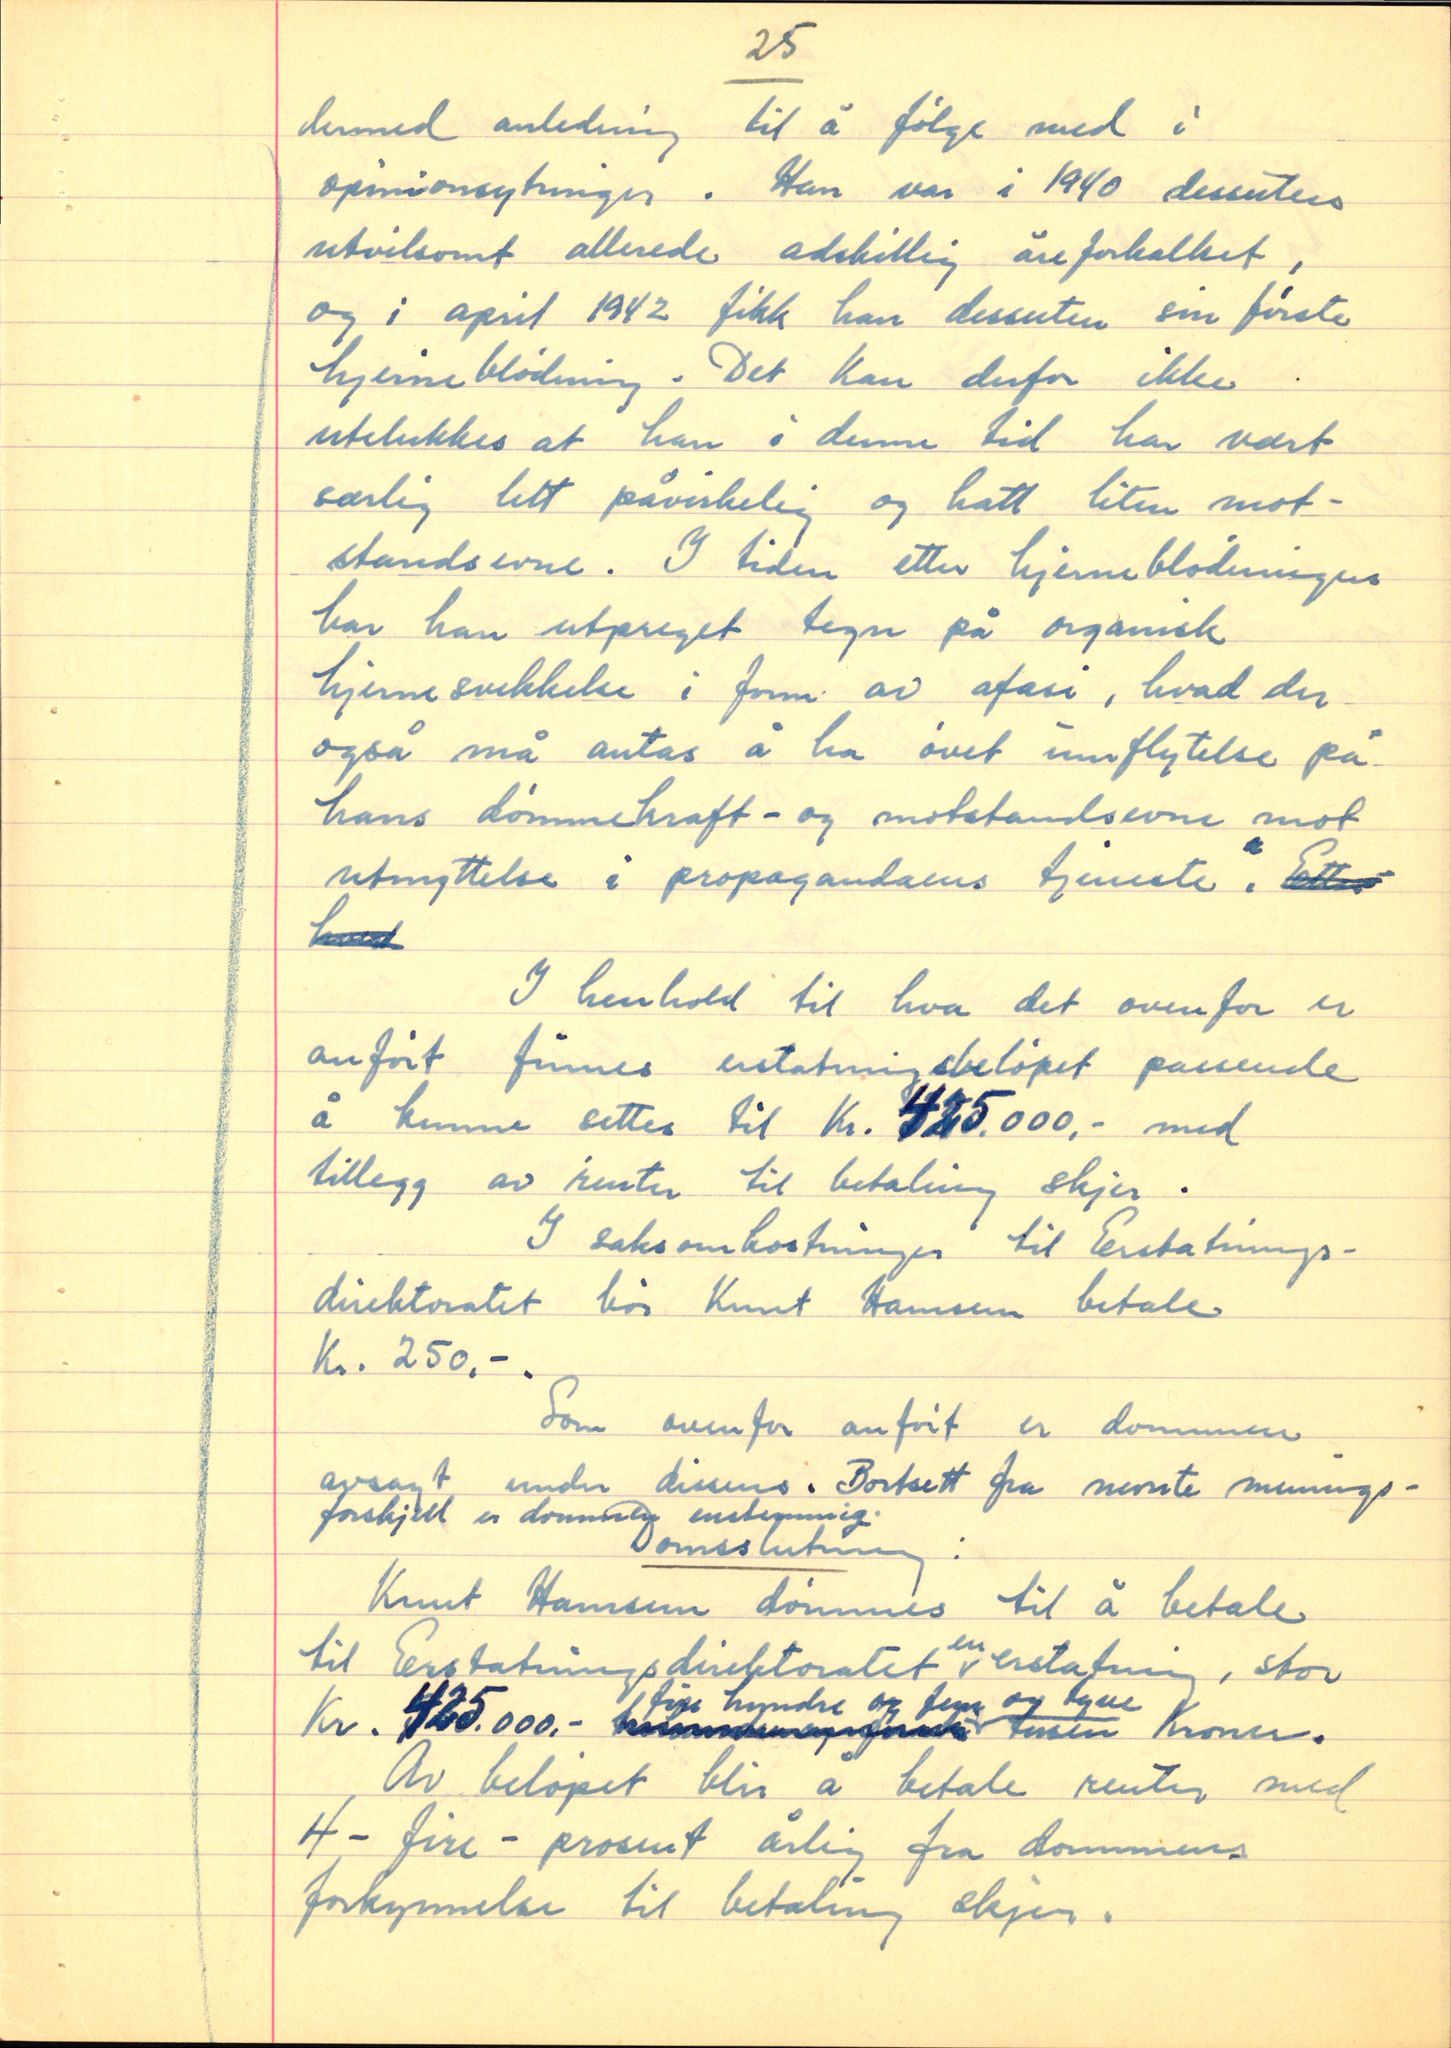 25
dermed anledning til å følge med i
opinionsytringer. Han var i 1940 dessuten
utvilsomt allerede adskillig åreforkalket,
og i april 1942 fikk han dessuten sin første
hjerneblødning. Det kan derfor ikke
utelukkes at han i denne tid har vært
særlig lett påvirkelig og hatt liten mot-
standsevne. I tiden etter hjerneblødningen
har han utpreget tegn på organisk
hjernesvekkelse i form av afasi, hvad der
også må antas å ha øvet innflytelse på
hans dømmekraft - og motstandsevne mot
utnyttelse i propagandaens tjeneste. Etter
hvad
I henhold til hva det ovenfor er
anført finnes erstatningsbeløpet passende
å kunne settes til Kr. 425.000,- med
tillegg av renter til betaling skjer.
I saksomkostninger til Erstatnings-
direktoratet bør Knut Hamsun betale
Kr. 250,-.
Som ovenfor anført er dommen
avsagt under dissens. Bortsett fra nevnte menings-
forskjell er dommen enstemmig.
Domsslutning:
Knut Hamsun dømmes til å betale
til Erstatningsdirektoratet en erstatning, stor
Kr. 425.000.- fire hundre og fem og tyve tusen Kroner.
Av beløpet blir å betale renter med
4 - fire - prosent årlig fra dommens
forkynnelse til betaling skjer.